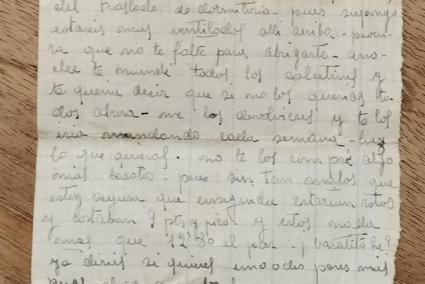 del traslado de dormitorio. pues supongo
estareis mas ventilados alli arriba. procu-
ra que no te falte para abrigarte. ano-
che te mande todos los calcetines y
te queria decir que si no los querias to-
dos ahora me los devolvieses y te los
iria mandando cada semana. haz
lo que quieras. no te los compré algo
mas baratos pues son tan malos que
estoy segura que enseguida estarian rotos
y costaban 9 pts y pico y estos nada
mas que 12'80 el par. ¡baratito he?
ya dirás si quieres uno o dos pares mas